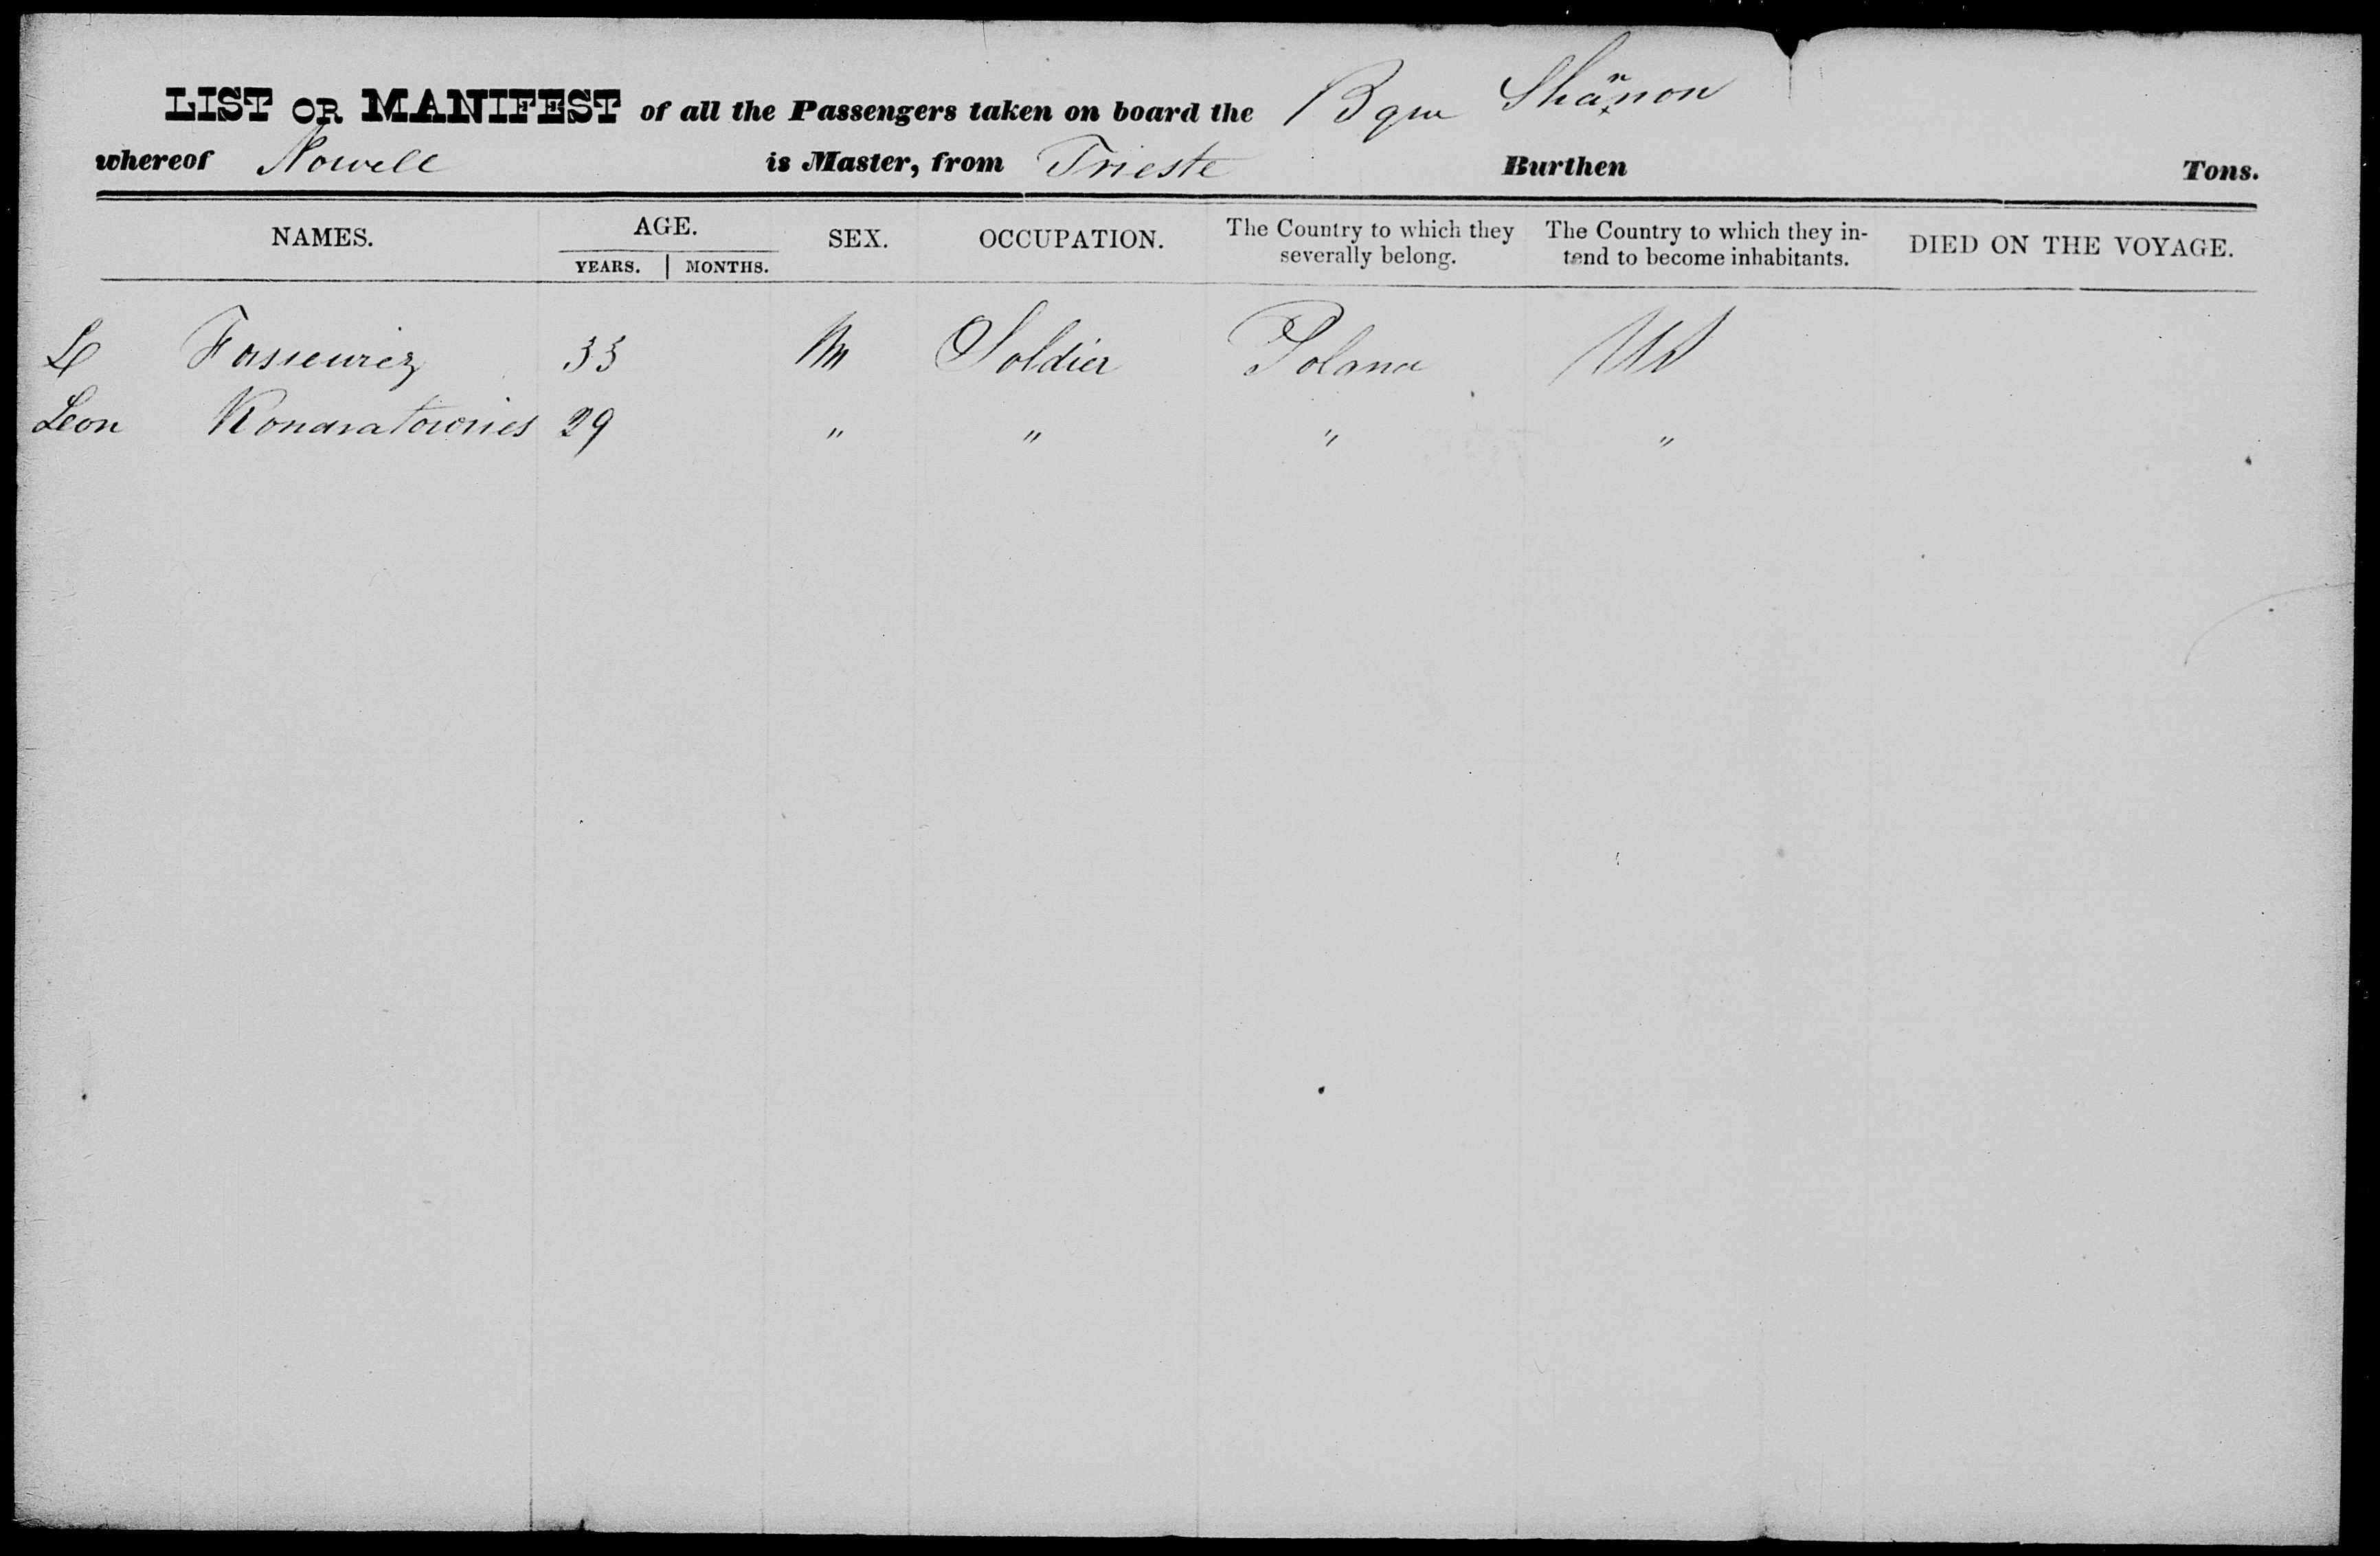 LIST OR MANIFEST of all the Passengers taken on board the Bque Shannon
whereof Nowell is Master, from Trieste Burthen Tons.
NAMES. AGE. SEX. OCCUPATION. The Country to which they severally belong. The Country to which they intend to become inhabitants. DIED ON THE VOYAGE.
YEARS. MONTHS.
L Fassewicz 33 M Soldier Poland US
Leon Kondratowies 29 " " " "